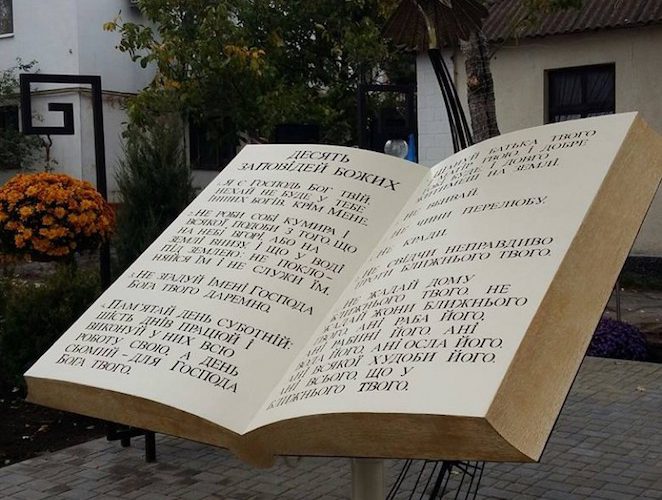 ДЕСЯТЬ
ЗАПОВІДЕЙ БОЖИХ
1. Я Є ГОСПОДЬ БОГ ТВІЙ,
НЕХАЙ НЕ БУДЕ У ТЕБЕ
ІНШИХ БОГІВ, КРІМ МЕНЕ.
2. НЕ РОБИ СОБІ КУМИРА І
ВСЯКОЇ ПОДОБИ З ТОГО, ЩО
НА НЕБІ ВГОРІ, АБО НА
ЗЕМЛІ ВНИЗУ, І ЩО У ВОДІ
ПІД ЗЕМЛЕЮ; НЕ ПОКЛО-
НЯЙСЯ ЇМ І НЕ СЛУЖИ ЇМ.
3. НЕ ЗГАДУЙ ІМЕНІ ГОСПОДА
БОГА ТВОГО ДАРЕМНО.
4. ПАМ'ЯТАЙ ДЕНЬ СУБОТНІЙ:
ШІСТЬ ДНІВ ПРАЦЮЙ І
ВИКОНУЙ У НИХ ВСЮ
РОБОТУ СВОЮ, А ДЕНЬ
СЬОМИЙ – ДЛЯ ГОСПОДА
БОГА ТВОГО.
ШАНУЙ БАТЬКА ТВОГО
І МАТІР ТВОЮ, І ДОБРЕ
ТОБІ БУДЕ, І ДОВГО
ЖИТИМЕШ НА ЗЕМЛІ.
НЕ ВБИВАЙ.
НЕ ЧИНИ ПЕРЕЛЮБУ.
НЕ КРАДИ.
НЕ СВІДЧИ НЕПРАВДИВО
ПРОТИ БЛИЖНЬОГО ТВОГО.
НЕ ЖАДАЙ ДОМУ
БЛИЖНЬОГО ТВОГО, НЕ
ЖАДАЙ ЖОНИ БЛИЖНЬОГО
ТВОГО, АНІ РАБА ЙОГО,
АНІ РАБИНІ ЙОГО, АНІ
ВОЛА ЙОГО, АНІ ОСЛА ЙОГО,
АНІ ВСЯКОЇ ХУДОБИ ЙОГО,
АНІ ВСЬОГО, ЩО У
БЛИЖНЬОГО ТВОГО.